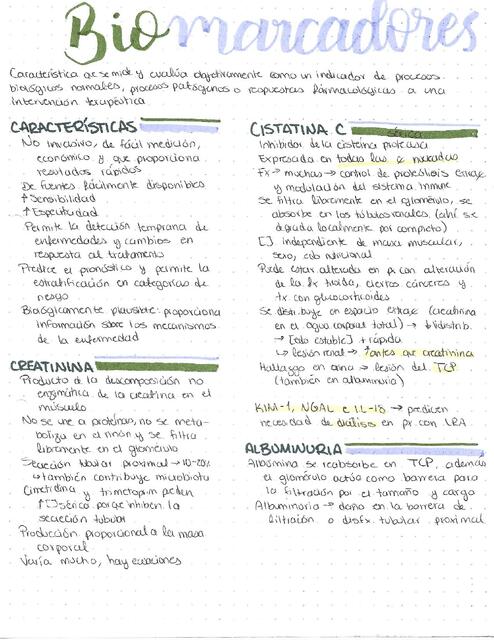 Biomarcadores
Característica q se mide y evalúa objetivamente como un indicador de procesos
biológicos normales, procesos patógenos o respuestas farmacológicas a una
intervención terapéutica
CARACTERÍSTICAS
No invasivo, de fácil medición,
económico y que proporciona
resultados rápidos
De fuentes fácilmente disponibles
↑ Sensibilidad
↑ Especificidad
Permite la detección temprana de
enfermedades y cambios en
respuesta al tratamiento
Predice el pronóstico y permite la
estratificación en categorías de
riesgo
Biológicamente plausible: proporciona
información sobre los mecanismos
de la enfermedad
CREATININA
Producto d la descomposición no
enzimática de la creatina en el
músculo
No se une a proteínas, no se meta-
boliza en el riñón y se filtra
libremente en el glomérulo
Secreción tubular proximal → 10-20%
↳ también contribuye microbiota
Cimetidina y trimetoprim pueden
↑ [] sérica porque inhiben la
secreción tubular
Producción proporcional a la masa
corporal
Varía mucho, hay ecuaciones
CISTATINA C sérica
Inhibidor de la cisteína proteasa
Expresada en todas las c nucleadas
Fx → muchas → control de proteólisis extrac
y modulación del sistema inmune
Se filtra libremente en el glomérulo, se
absorbe en los túbulos renales (ahí se
degrada localmente por completo)
[] independiente de masa muscular,
sexo, edo nutricional
Puede estar alterada en px con alteración
de la fx tiroidea, ciertos cánceres y
tx con glucocorticoides
Se distribuye en espacio extrac (creatinina
en el agua corporal total) → ↓ distrib.
→ [edo estable] + rápida
↳ lesión renal → ↑ antes que creatinina
Hallazgo en orina → lesión del TCP
(también en albuminuria)
KIM-1, NGAL e IL-18 → predicen
necesidad de diálisis en px con LRA
ALBUMINURIA
Albúmina se reabsorbe en TCP, además
el glomérulo actúa como barrera para
la filtración por el tamaño y carga
Albuminuria → daño en la barrera de
filtración o disfx. tubular proximal